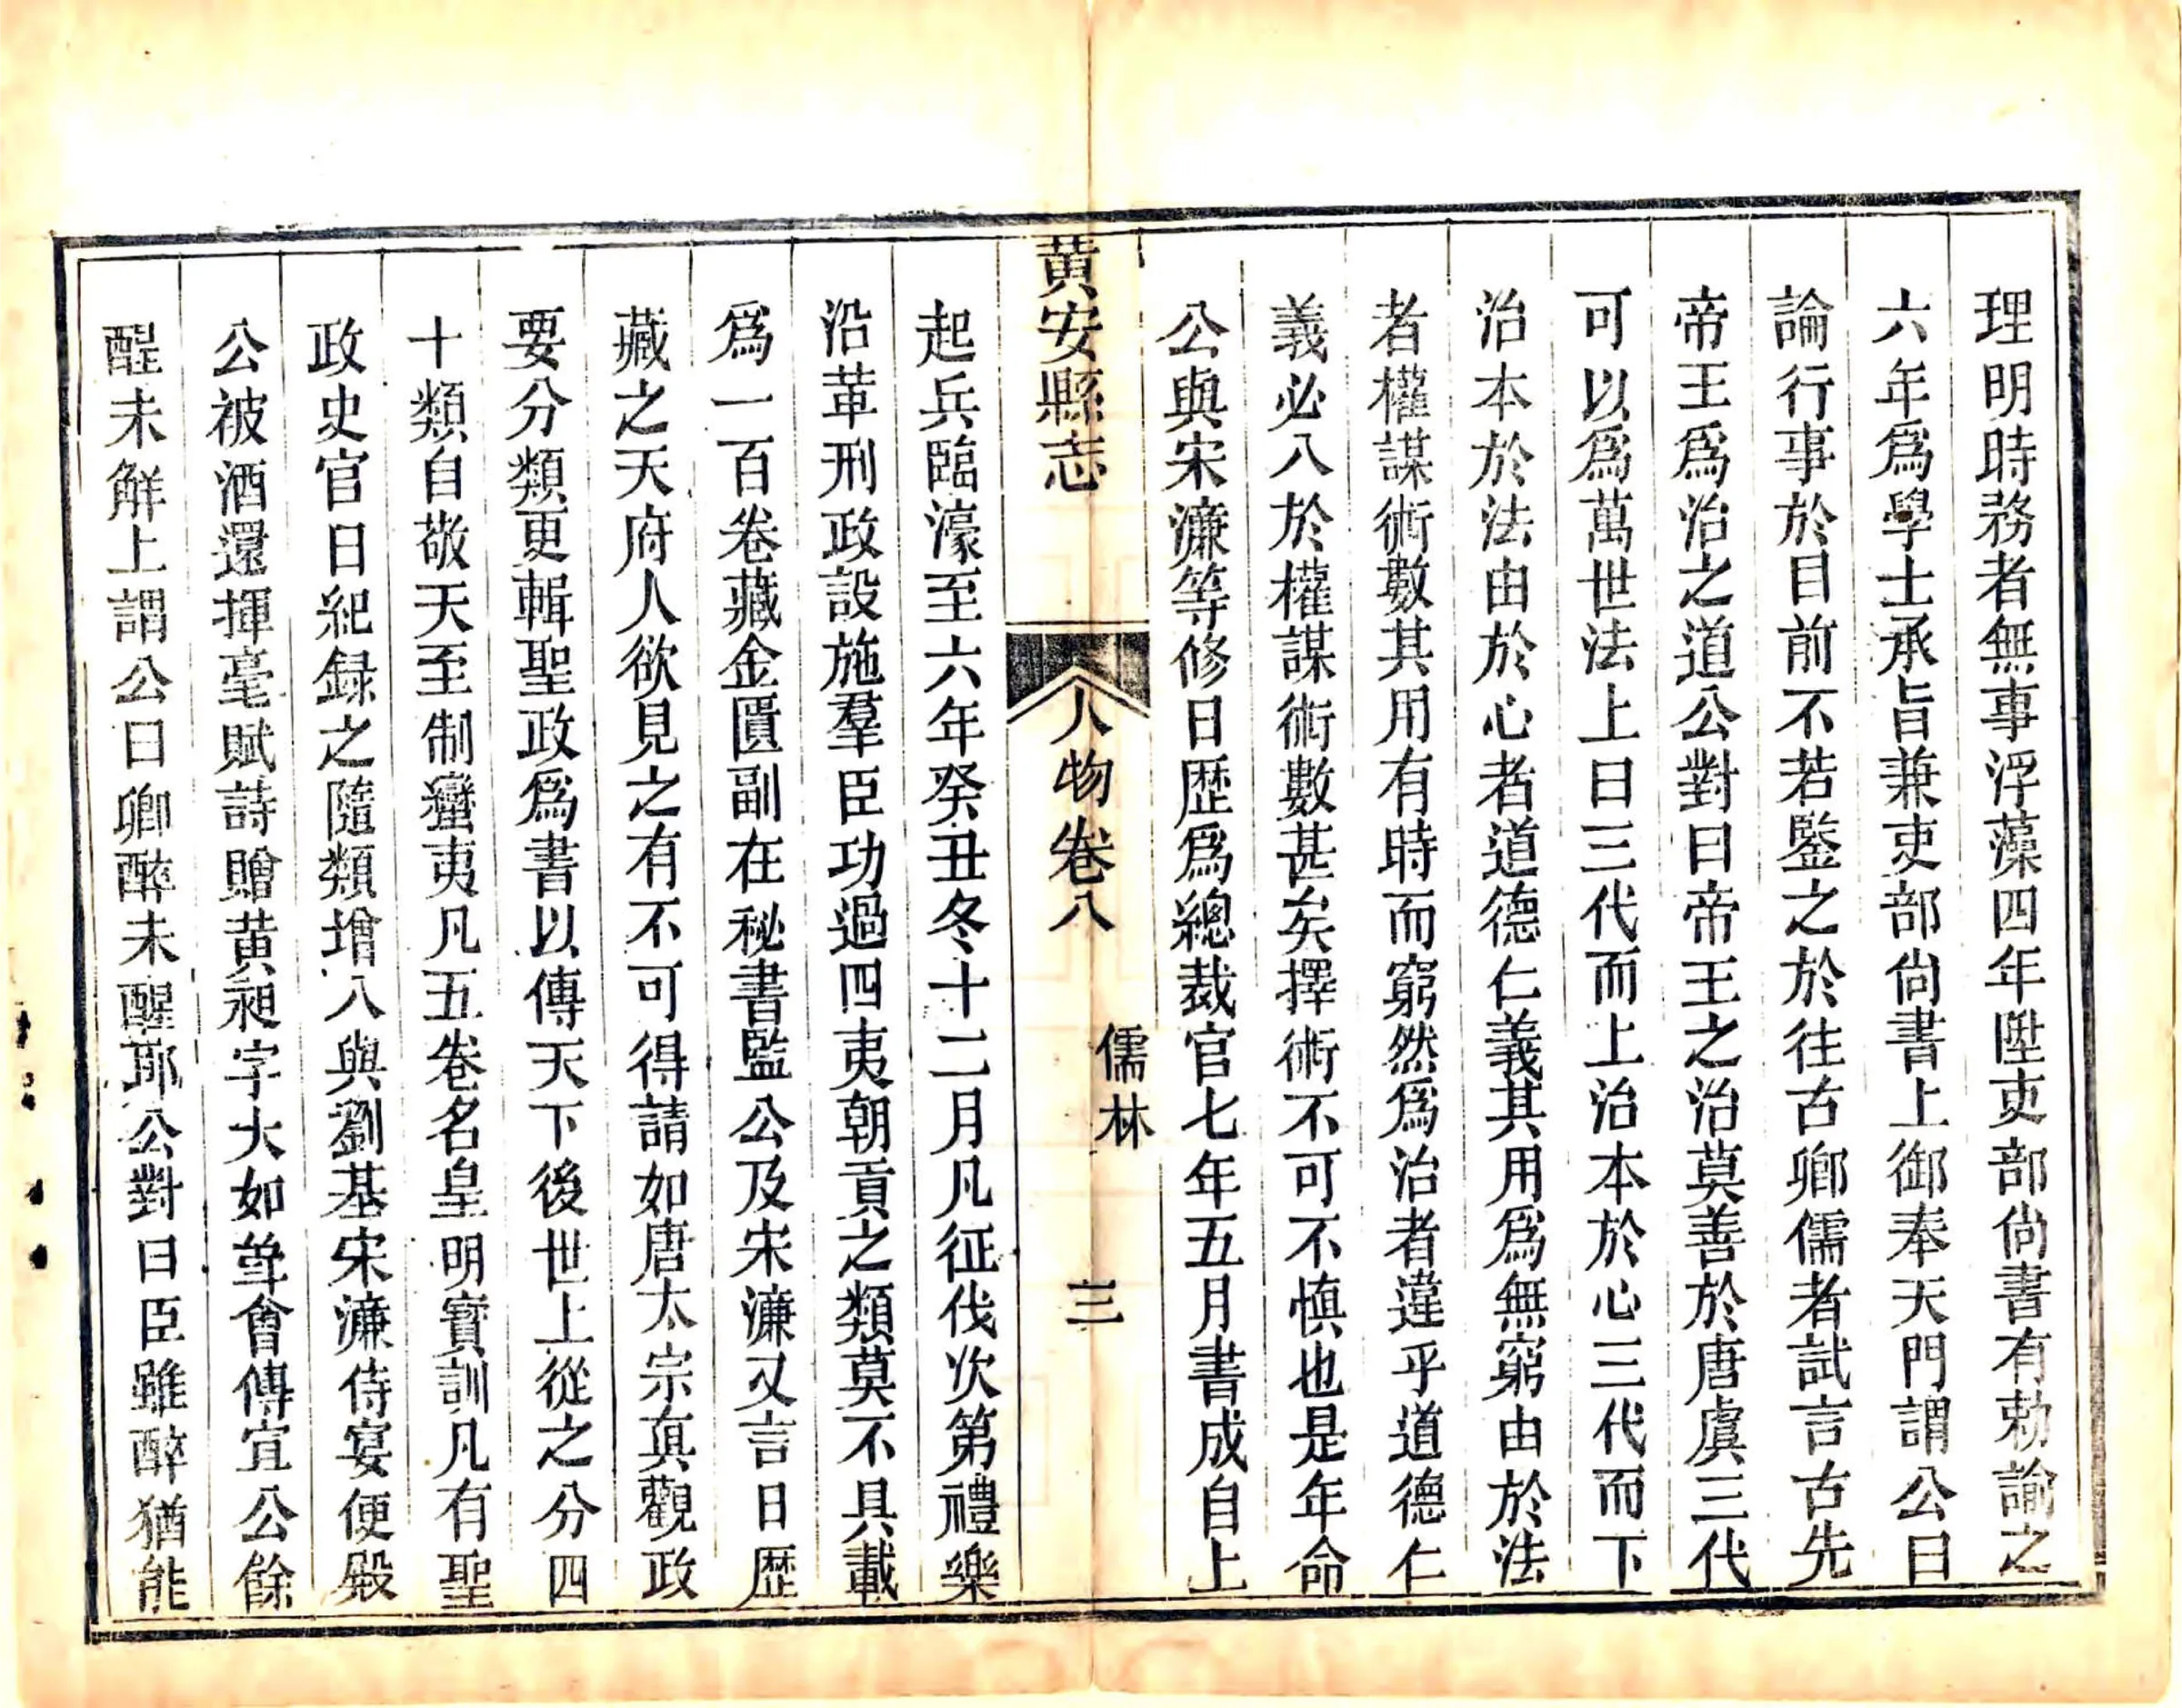 理明時務者無事浮藻四年陞吏部尙書有勅諭之
六年爲學士承旨兼吏部尙書上御奉天門謂公曰
論行事於目前不若鑒之於往古卿儒者試言古先
帝王爲治之道公對曰帝王之治莫善於唐虞三代
可以爲萬世法上曰三代而上治本於心三代而下
治本於法由於心者道德仁義其用爲無窮由於法
者權謀術數其用有時而窮然爲治者違乎道德仁
義必入於權謀術數甚矣擇術不可不慎也是年命
公與宋濂等修日歴爲總裁官七年五月書成自上
黄安縣志
人物卷八
儒林
三
起兵臨濠至六年癸丑冬十二月凡征伐次第禮樂
沿革刑政設施羣臣功過四夷朝貢之類莫不具載
爲一百卷藏金匱副在秘書監公及宋濂又言日歴
藏之天府人欲見之有不可得請如唐太宗眞觀政
要分類更輯聖政爲書以傳天下後世上從之分四
十類自敬天至制蠻夷凡五卷名皇明寳訓凡有聖
政史官日紀録之隨類增入與劉基宋濂侍宴便殿
公被酒還揮毫賦詩贈黄昶字大如
會傳宜公餘
酲未解上謂公曰卿醉未醒耶公對曰臣雖醉猶能